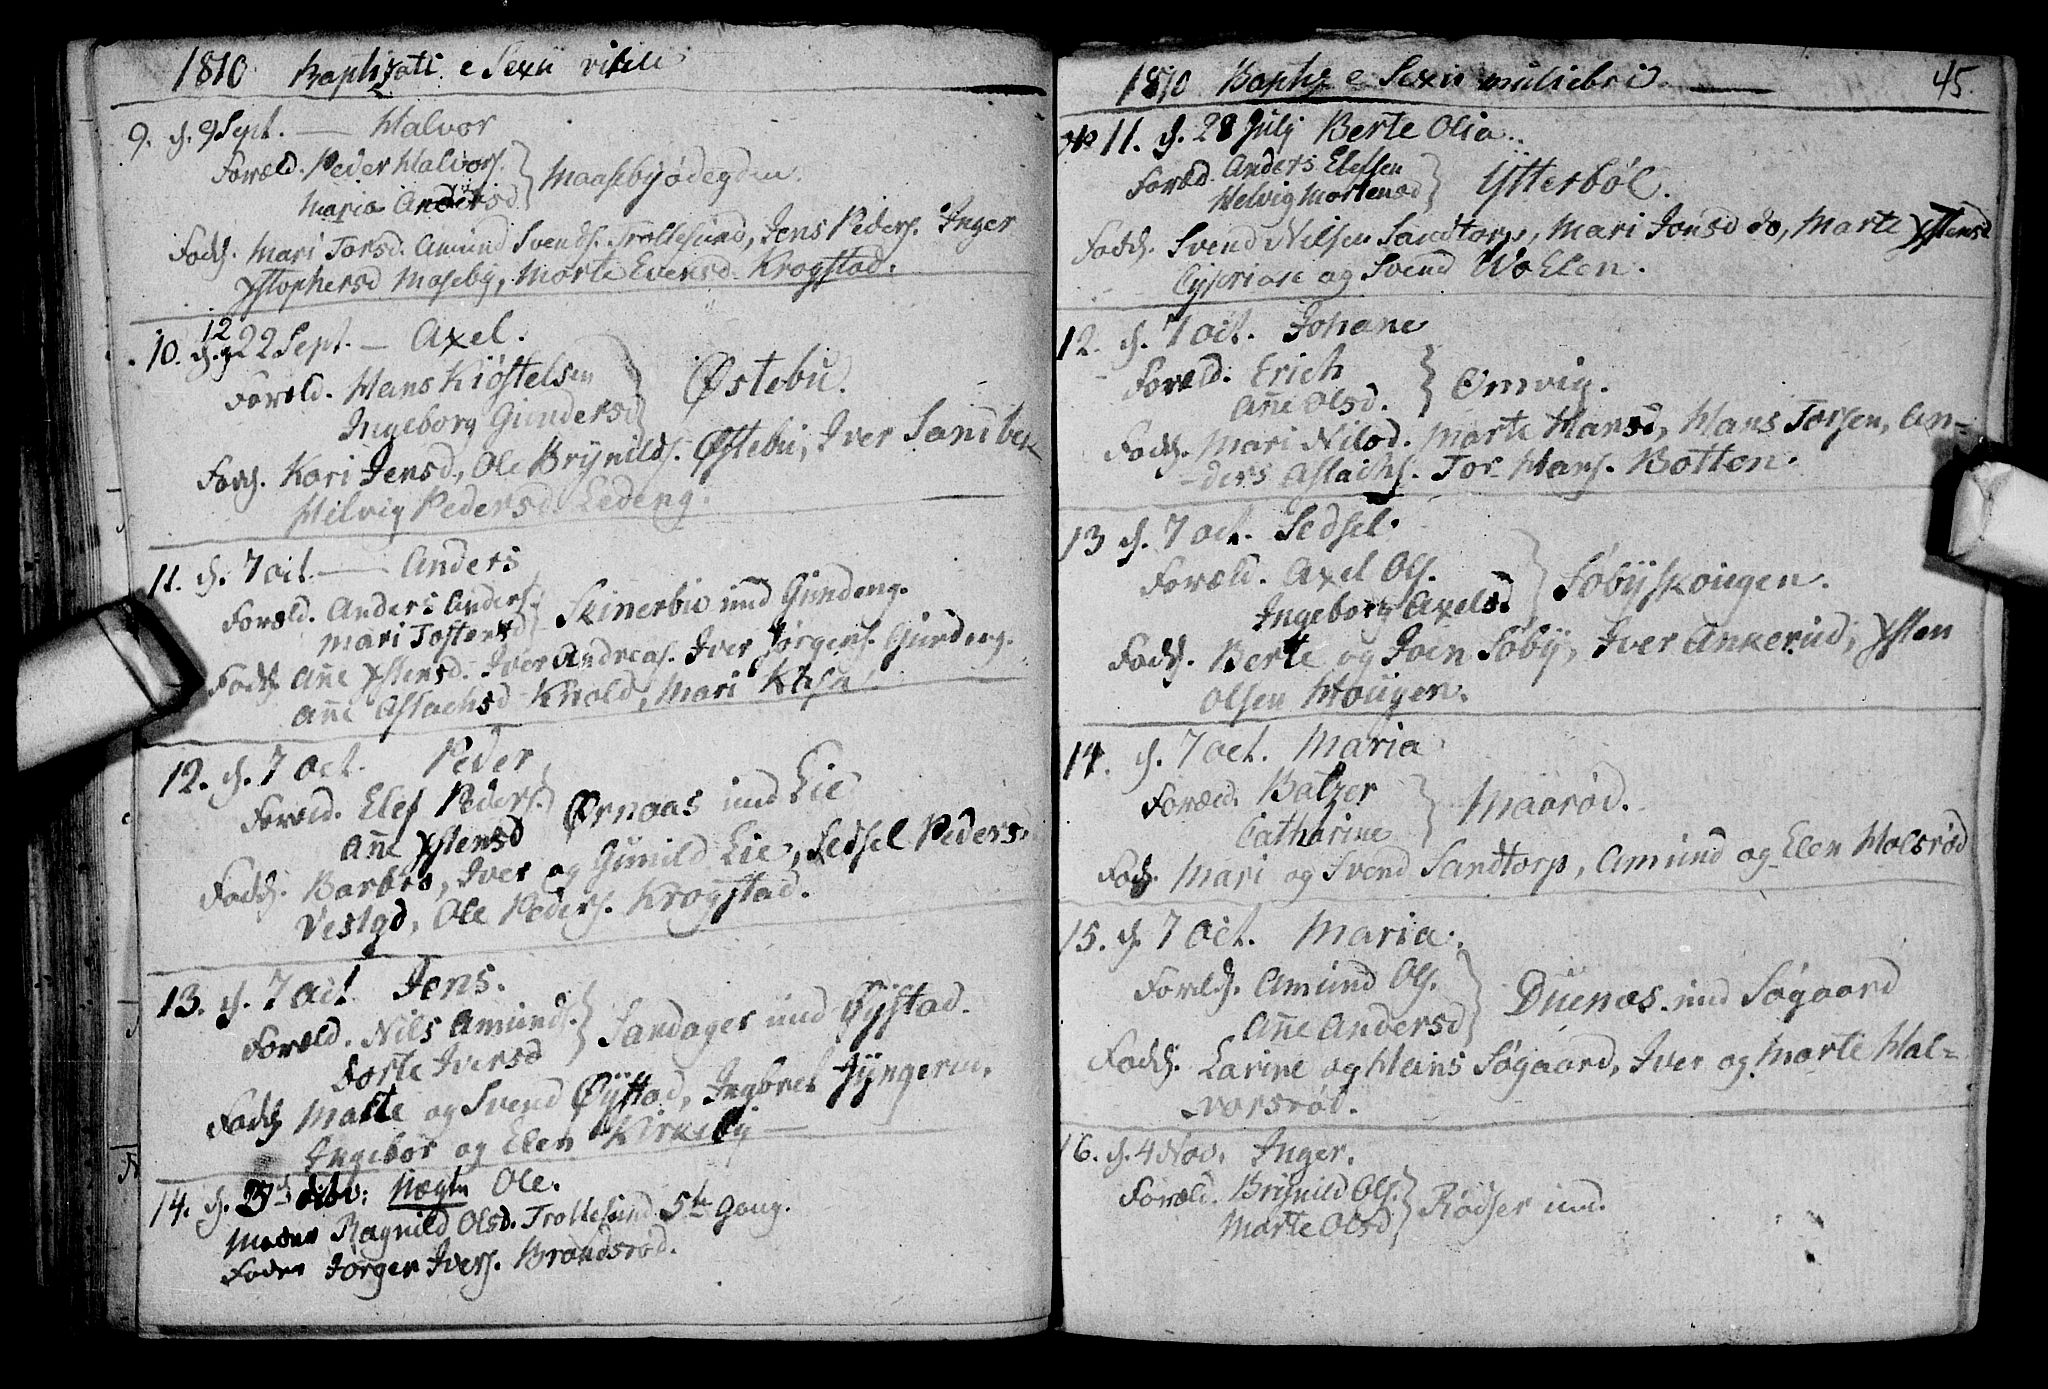 1810 Baptizati e Sexu virili
9. d. 9 Sept. — Halvor
Foræld. Peder Halvors.
Maria Andersd } Maasebyødegden.
Fadd. Mari Torsd. Amund Svends. Trollesund, Jens Peders. Inger
Xstophersd Moseby, Morte Evensd. Krogstad.
10. d. 22 Sept. — Axel.
12
Foræld. Hans Kiøstelsen
Ingeborg Gundersd } Østebu.
Fadd. Kari Jensd, Ole Brynilds. Østebu, Iver Sandbek
Hilvig Pedersd Ledeng.
11. d. 7 oct. — Anders
Foræld. Anders Anders.
Mari Tostensd } Skinerbu und Gundeng.
Fadd. Añe Xstensd. Iver Andreas. Iver Jørgens. Gundeng.
Añe Aslachsd Knold, Mari
12. d. 7 Oct. Peder
Foræld. Elef Peders.
Añe Xstensd } Ørnaas und Lie
Fadd. Barbro, Iver og Gunild Lie, Sedsel Peders.
Vestgd, Ole Peders. Krogstad.
13. d. 7 Oct. Jens.
Foræld. Nils Amunds.
Dorte Iversd } Sandager und Øystad.
Fadd. Malte og Svend Øystad, Ingbret Tyngerm.
Ingebor og Elen Kirkeby —
14. d. Nægtn Ole.
Moder Ragnild Olsd. Trollesund 5te Gang.
Fader Jørgen Ivers. Brandsrød.
1810 Baptz e Sexu muliebri. 45.
11. d. 28 July Berte Olia.
Foræld. Anders Elefsen
Helvig Mortensd } Ytterbøl.
Fadd. Svend Nilsen Sandtorp, Mari Jonsd do, Marte Xstensd
Cypriase og Svend WoElen.
12. d. 7 oct. Johane
Foræld. Erich
Añe Olsd. } Omvig.
Fadd. Mari Nilsd. Morte Hansd, Hans Torsen, An-
-ders Aslachs. Tor Hans. Botten.
13 d. 7 oct. Sedsel.
Foræld. Axel Ols.
Ingeborg Axelsd } Søbyskougen.
Fadd. Berte og Joen Søby, Iver Ankerud, Xsten
Olsen Hougen.
14. d. 7 oct. Maria
Foræld. Balzer
Catharine } Maarød.
Fad. Mari og Svend Sandtorp, Amund og Elen Holsrød
15. d. 7 Oct. Maria.
Foreld. Amund Ols.
Añe Andersd } Duenæs. und Søgaard
Fadd. Larine og Hans Søgaard, Iver og Morte Hal-
-vorsrød.
16. d. 4 Nov. Inger.
Foræld. Brynild Ols.
Marte Olsd } Rødser und.